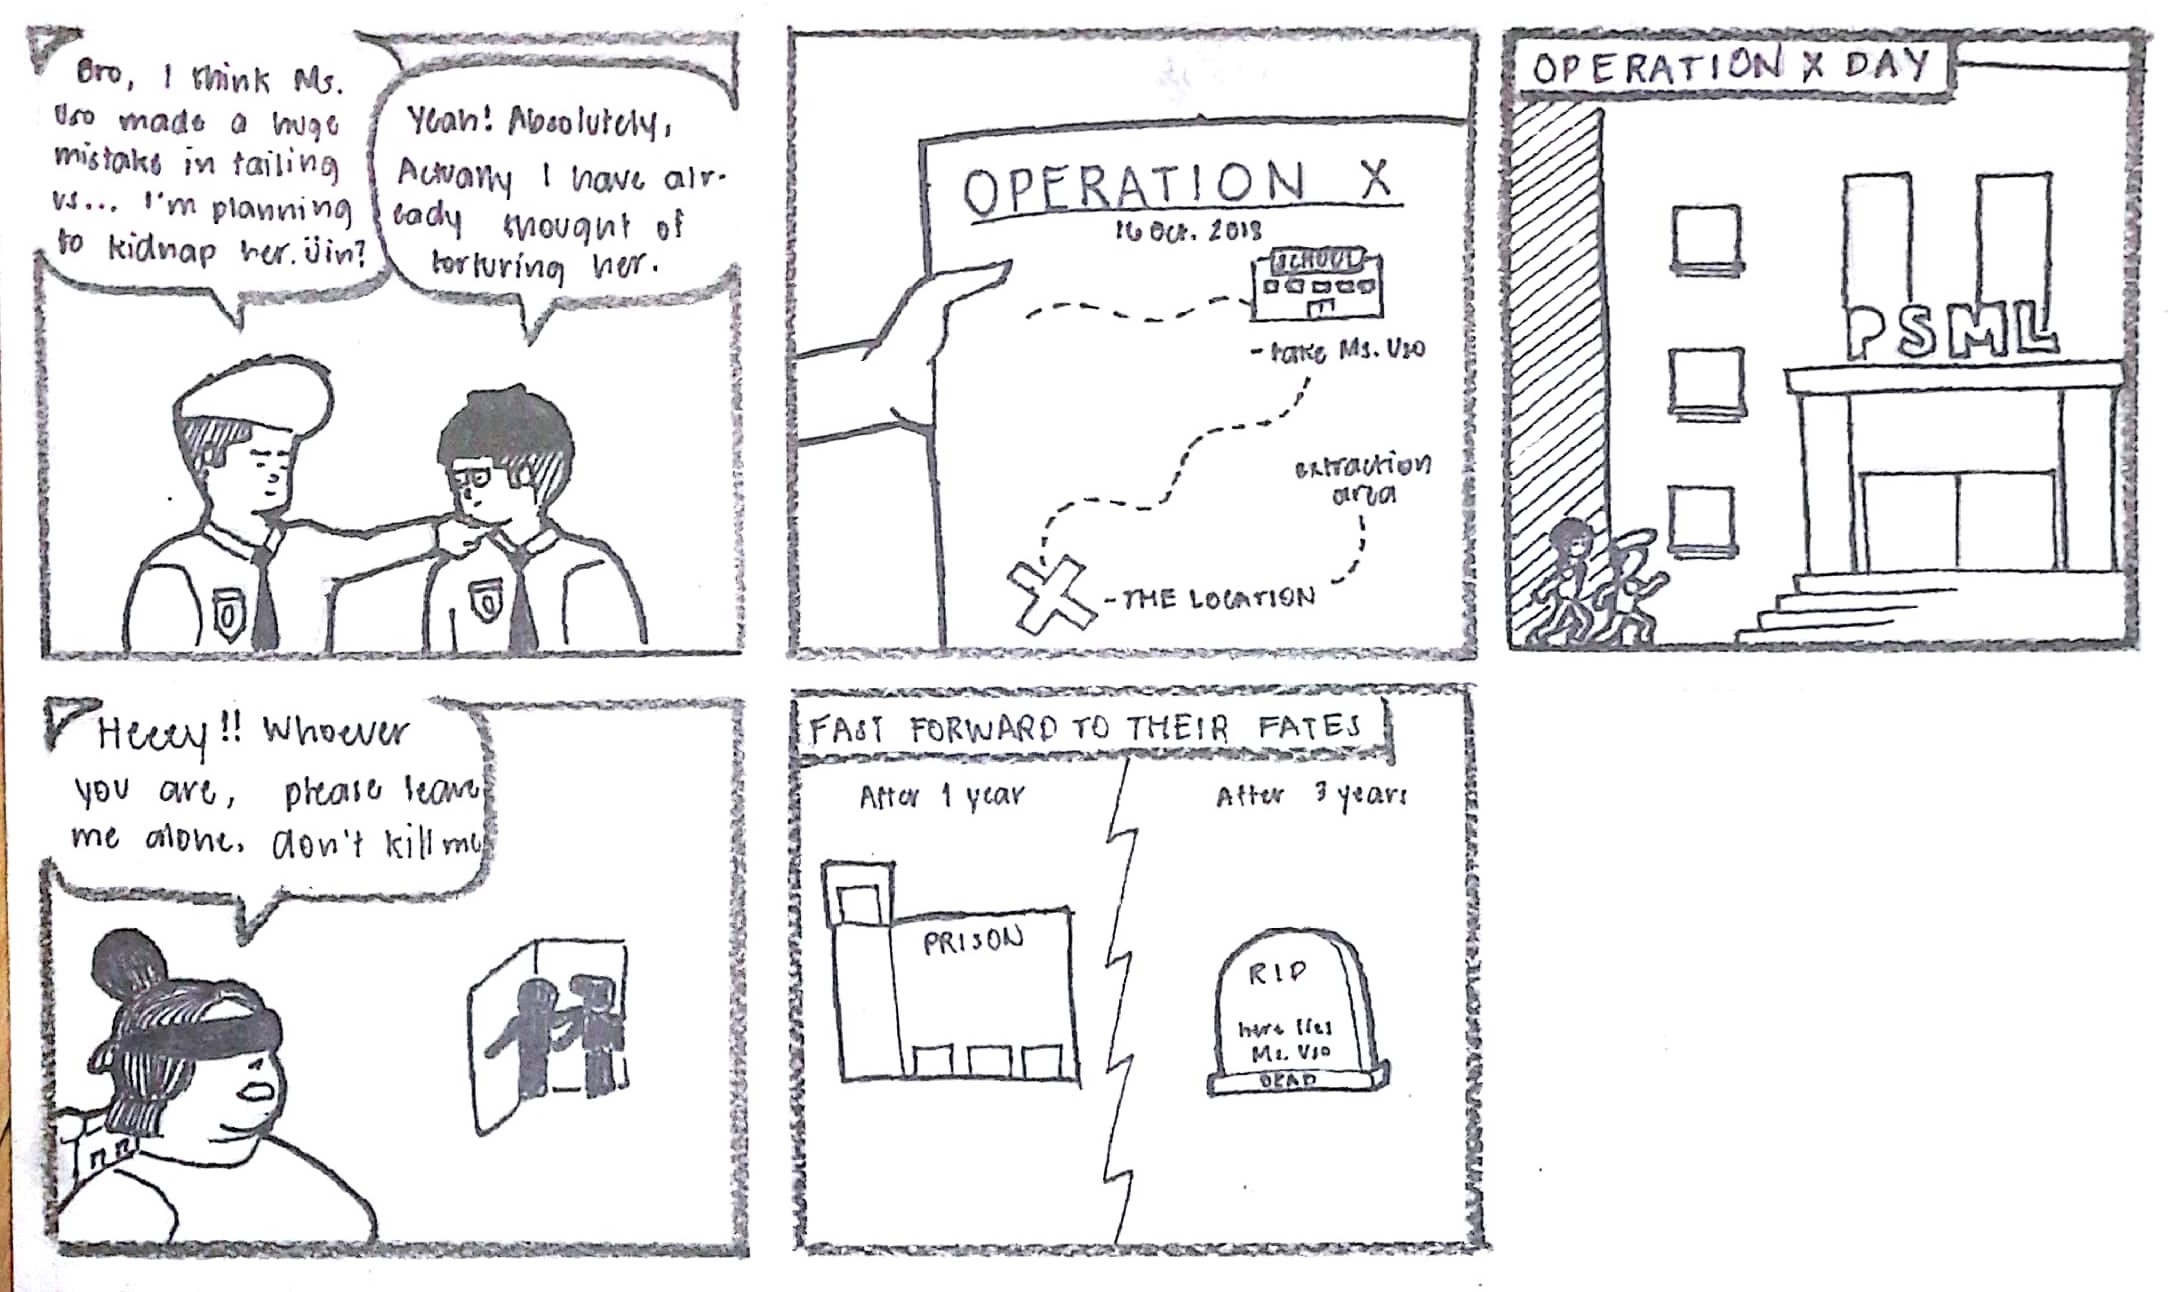 Bro, I think Ms.
Uso made a huge
mistake in failing
us... I'm planning
to kidnap her. Üin?
Yeah! Absolutely,
Actually I have alr-
eady thought of
torturing her.
OPERATION X
16 Oct. 2018
SCHOOL
- take Ms. Uso
extraction
area
- THE LOCATION
OPERATION X DAY
PSML
Heeey!! Whoever
you are, please leave
me alone. don't kill me
FAST FORWARD TO THEIR FATES
After 1 year
After 3 years
PRISON
RIP
here lies
Ms. Uso
DEAD